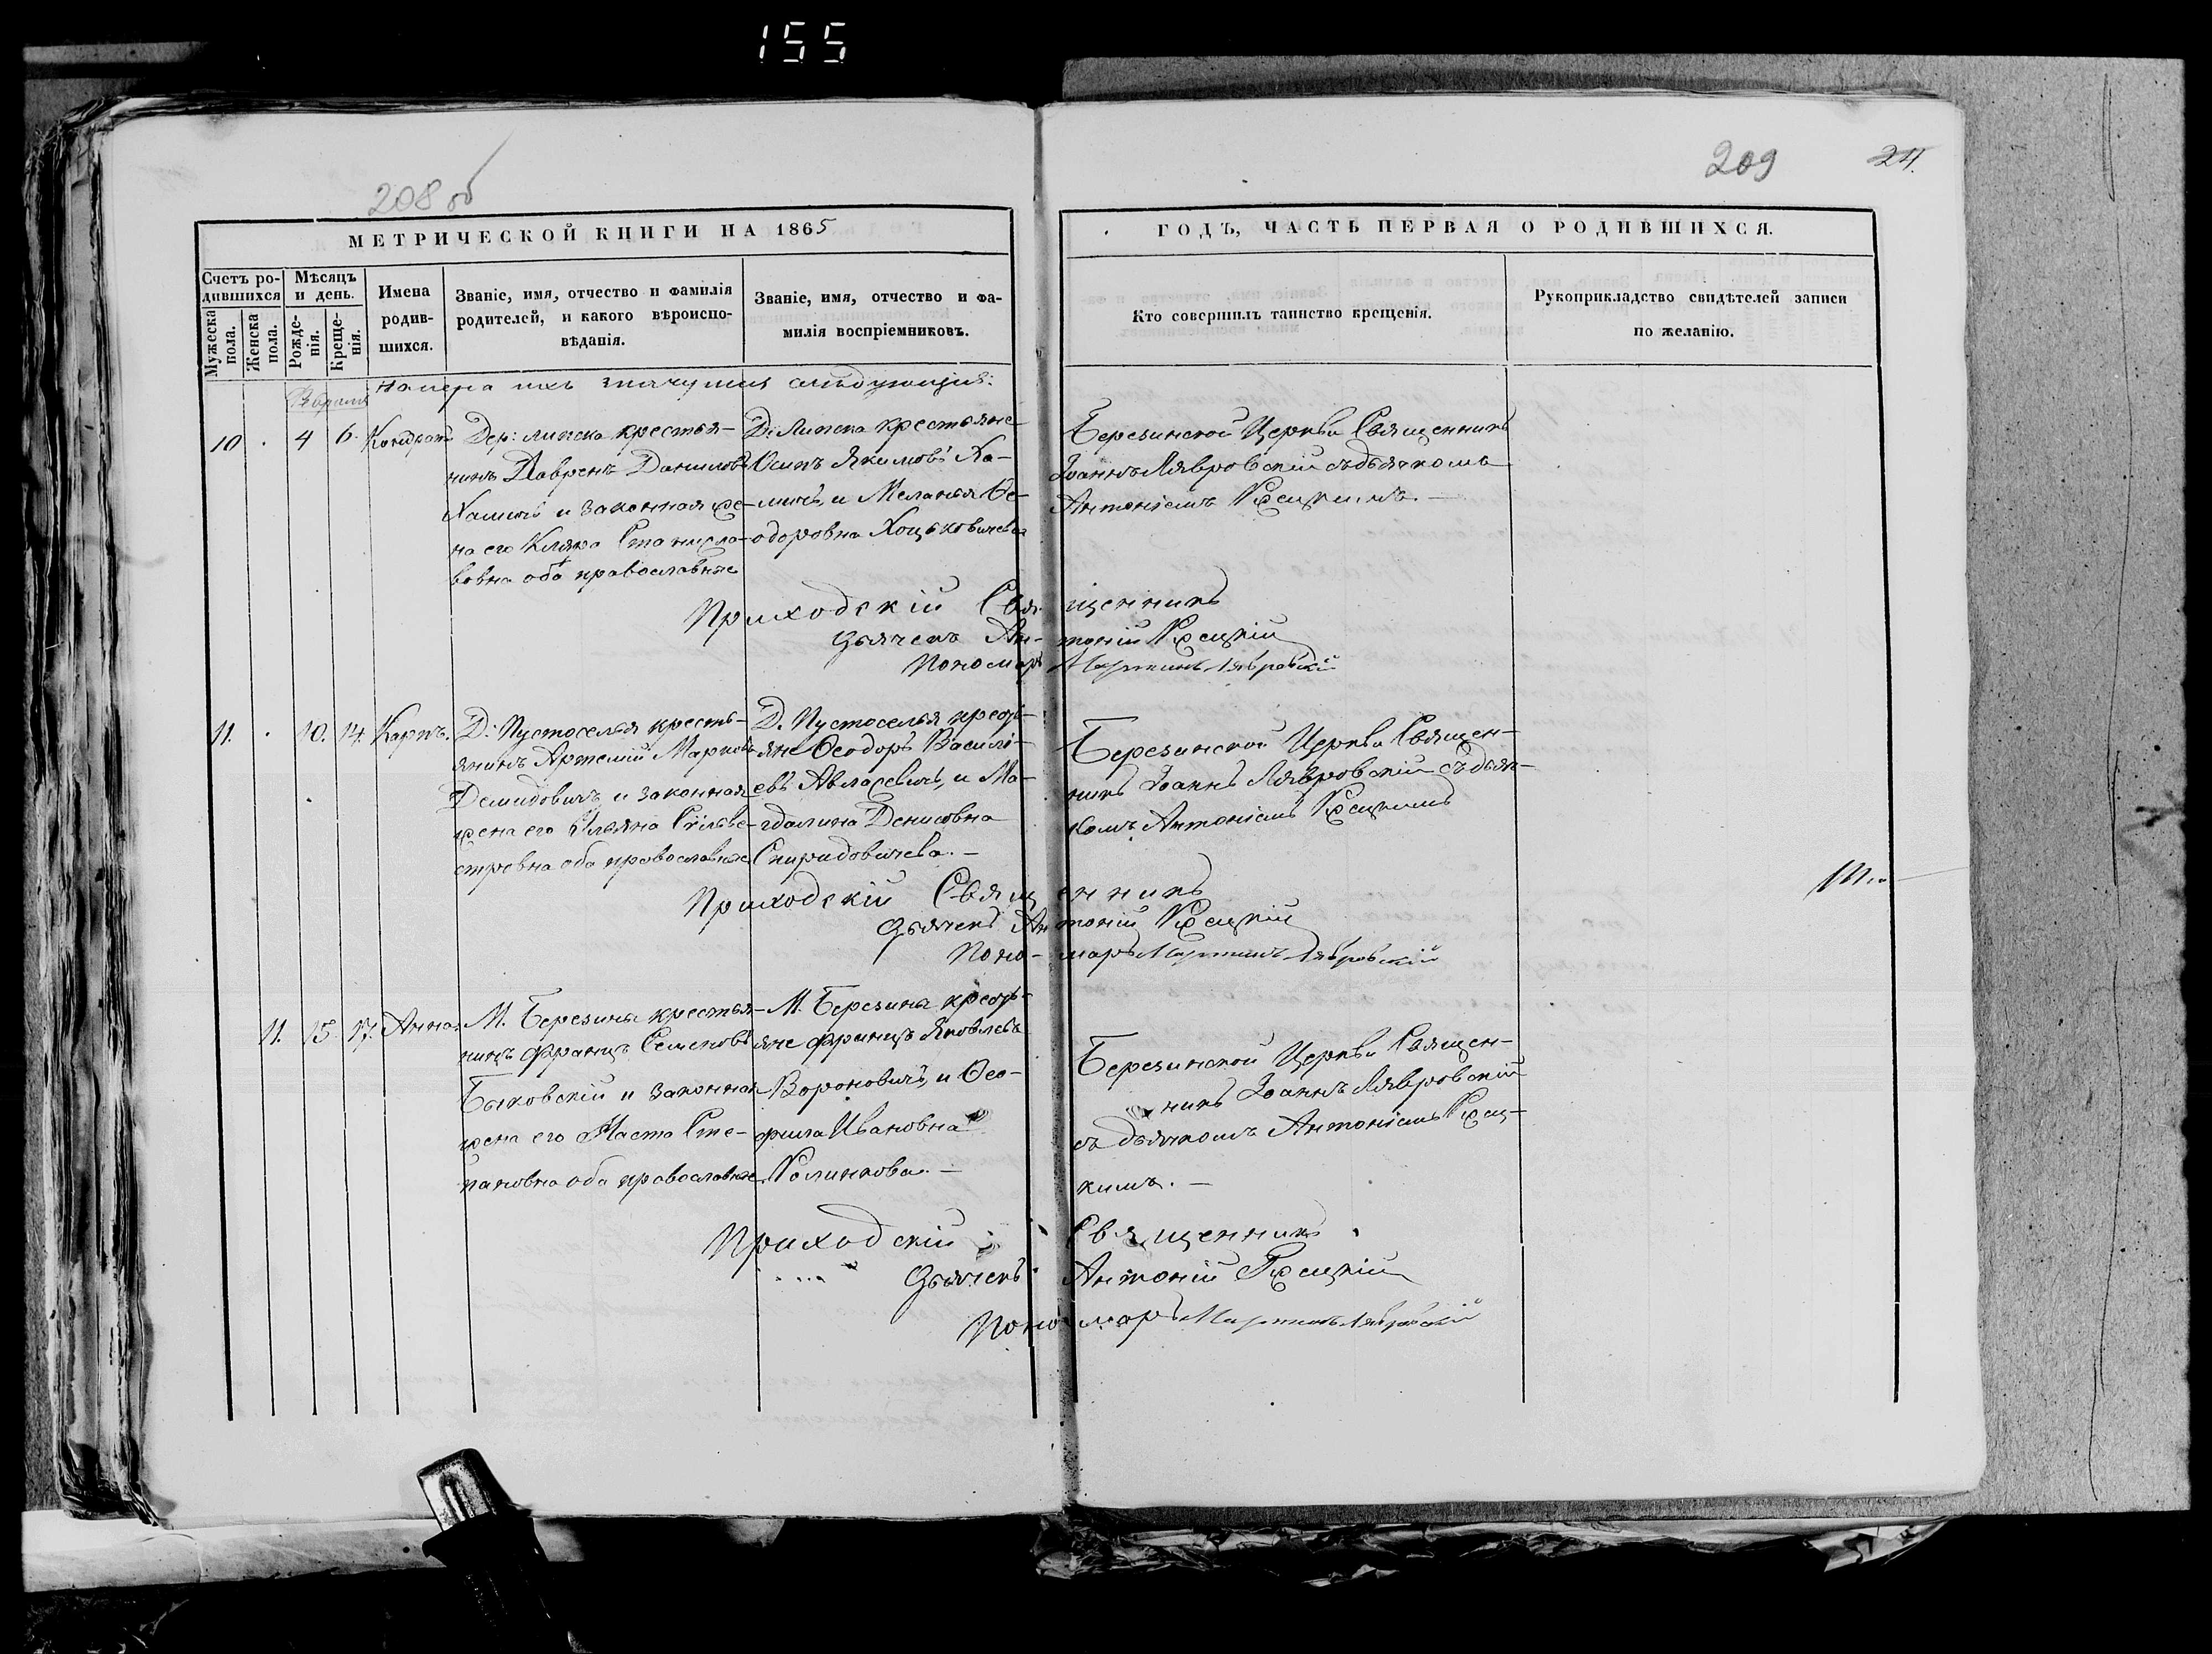 155
208 об
209
24.
МЕТРИЧЕСКОЙ КНИГИ НА 1865
ГОДЪ, ЧАСТЬ ПЕРВАЯ О РОДИВШИХСЯ.
Счетъ ро-
дившихся
Мужеска пола.
Женска пола.
Мѣсяцъ
и день.
Рожде-
нія.
Креще-
нія.
Имена
родив-
шихся.
Званіе, имя, отчество и фамилія
родителей, и какого вѣроиспо-
вѣданія.
Званіе, имя, отчество и фа-
милія воспріемниковъ.
Кто совершилъ таинство крещенія.
Рукоприкладство свидѣтелей записи
по желанію.
10
4
6
Кондратъ
Дер: Липска крестья-
нинъ Лавренъ Даниловъ
и законная же-
на его Станисла-
вовна оба православные
Д. Липска крестьяне
Осипъ Якимовъ Ха-
и Меланья Ѳе-
одоровна
Березинской Церкви Священникъ
Іоаннъ Лавровскій съ дьячкомъ
Антоніемъ
Приходскій Священникъ
Дьячекъ Антоній
Пономарь Мартинъ Лавровскій
11.
10.
14.
Карпъ.
Д: Пустоселья кресть-
янинъ Артемій Марковъ
Демидовичъ и законная
жена его Ульяна Сильве-
стровна оба православные
Д. Пустоселья кресть-
яне Ѳеодоръ Василі-
евъ Авласевичъ, и Ма-
гдалина Денисовна
Спиридовичева.-
Березинской Церкви Священ-
никъ Іоаннъ Лавровскій съ дьяч-
комъ Антоніемъ
Приходскій Священникъ
Дьячекъ Антоній
Пономарь Мартинъ Лавровскій
11.
15.
17.
Анна.
М. Березина крестья-
нинъ Францъ Семеновъ
Быковскій и законная
жена его Наста Сте-
пановна оба православные
М. Березина кресть-
яне Францъ Яковлевъ
Вороновичъ, и Ѳео-
фила Ивановна
Калинкова.-
Березинской Церкви Священ-
никъ Іоаннъ Лавровскій
съ дьячкомъ Антоніемъ
кимъ.-
Приходскій Священникъ
Дьячекъ Антоній
Пономарь Мартинъ Лавровскій